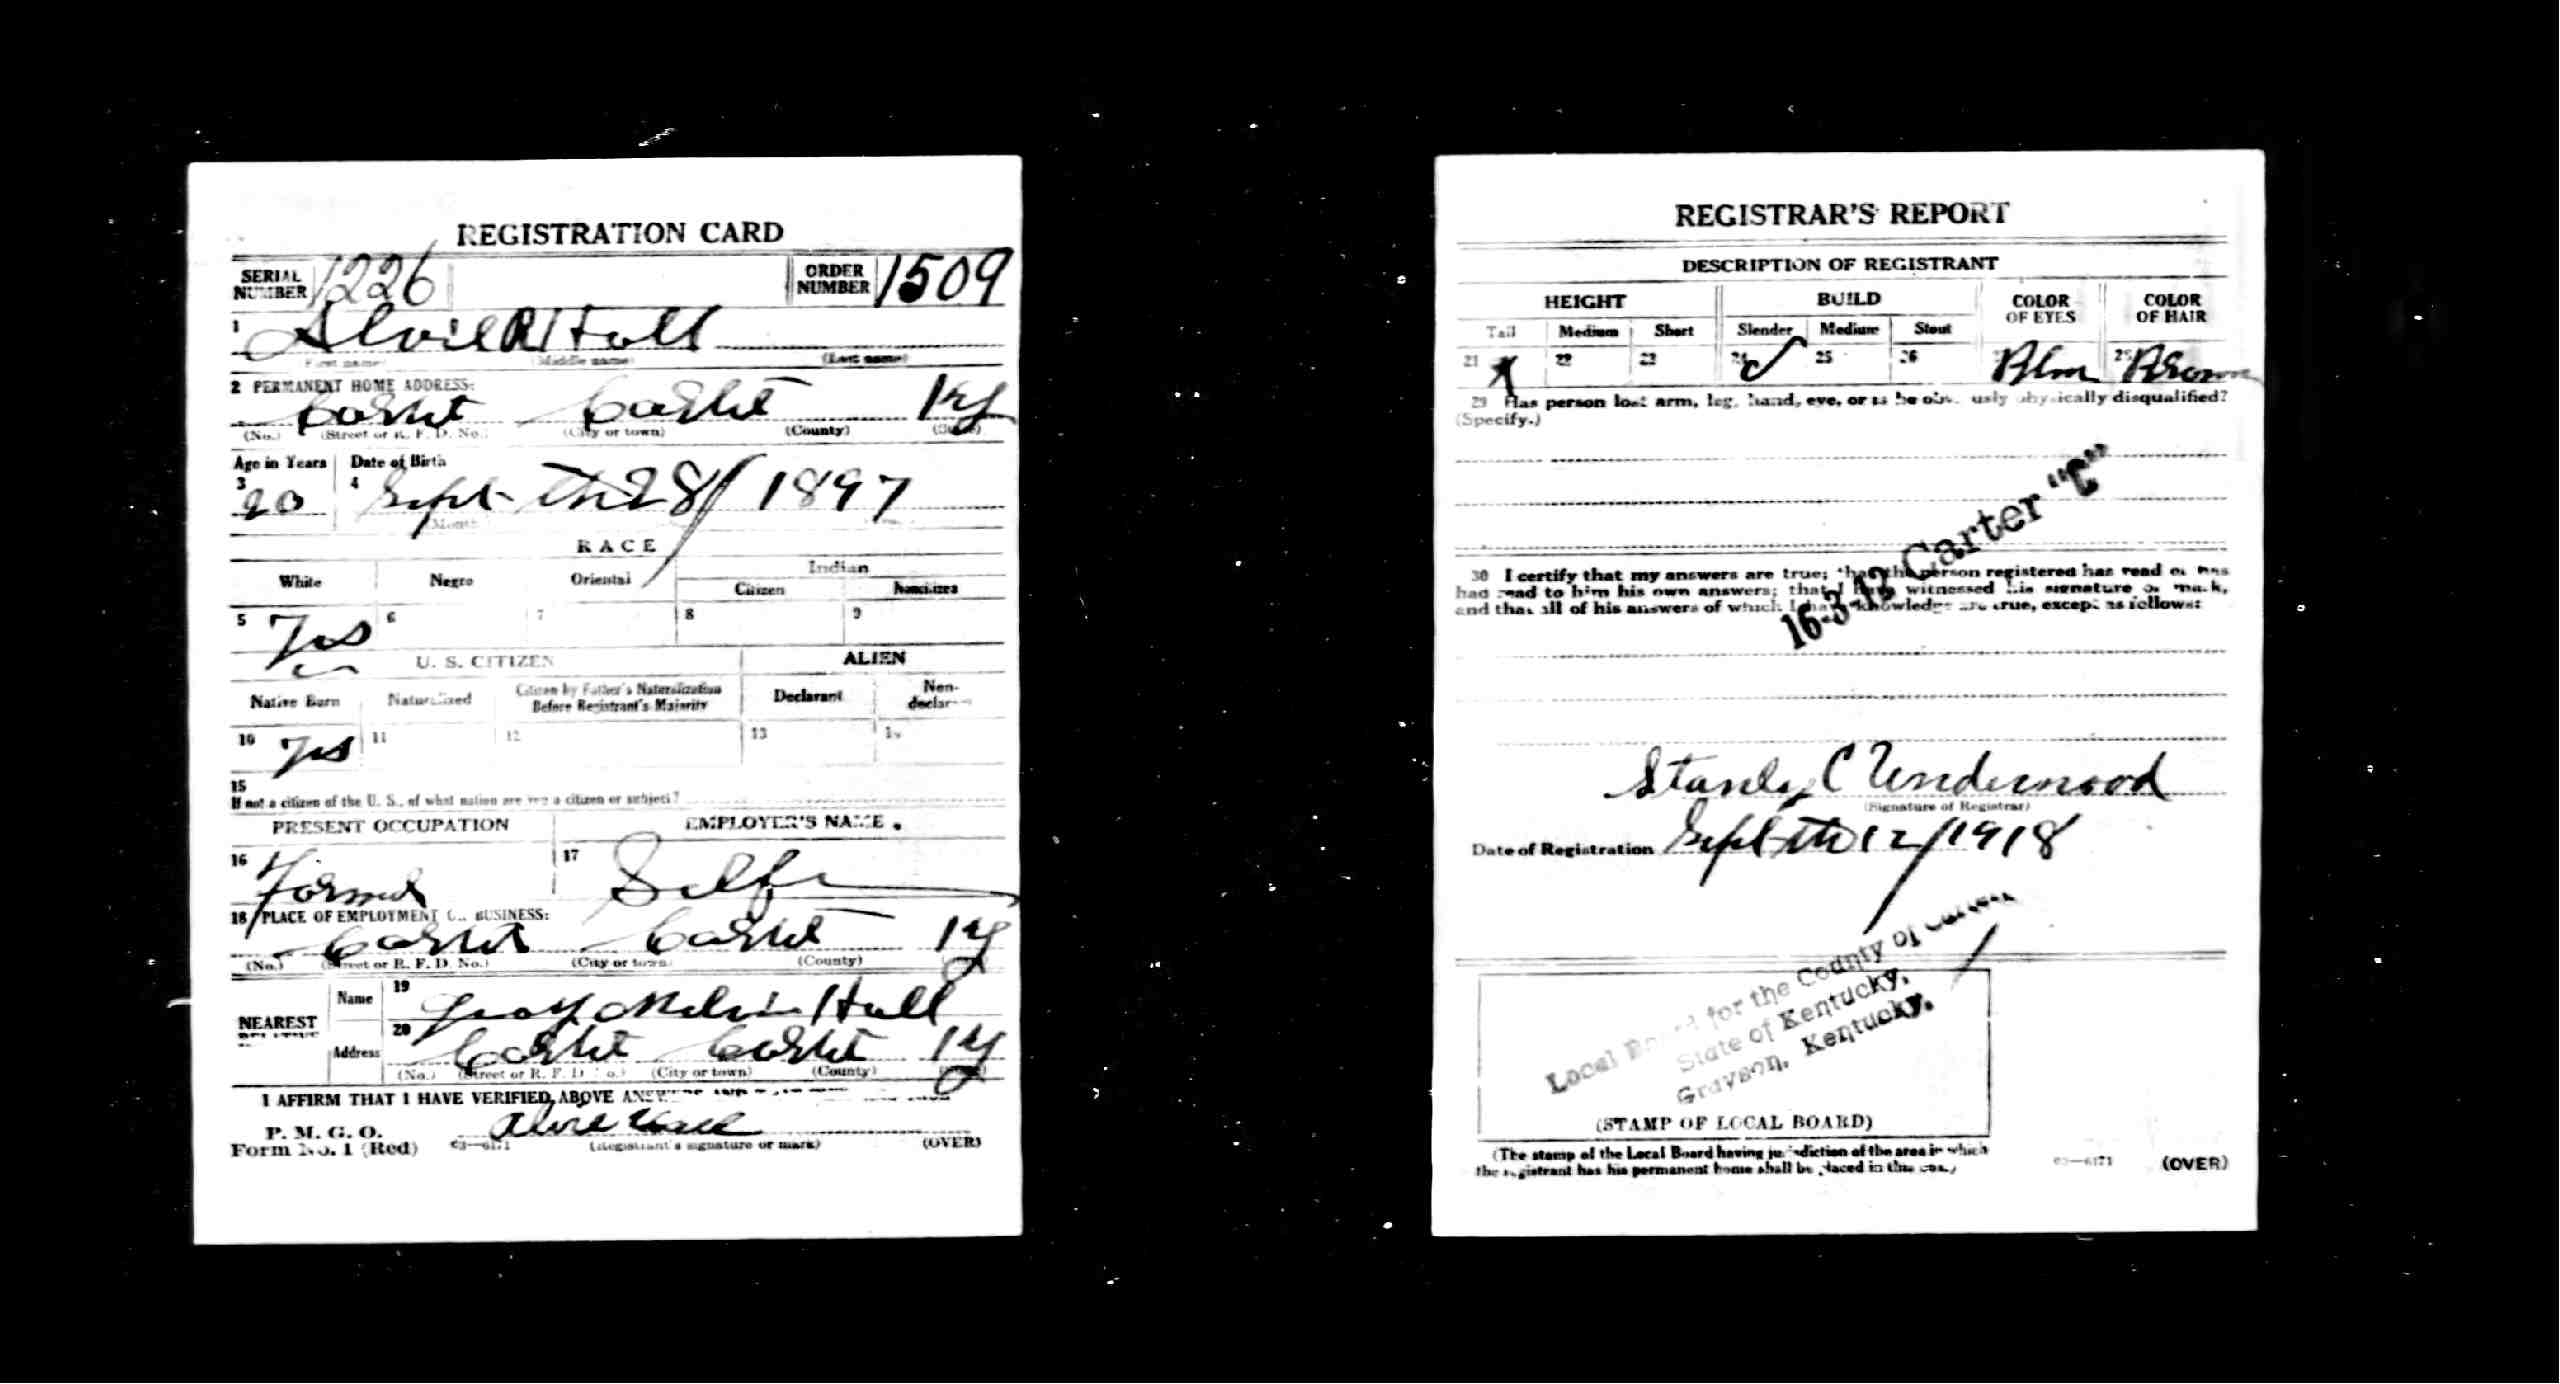 REGISTRATION CARD
SERIAL NUMBER 1226 ORDER NUMBER 1509
1 Alvie R Hall
(First name) (Middle name) (Last name)
2 PERMANENT HOME ADDRESS:
Carter Carter Ky
(No.) (Street or R. F. D. No.) (City or town) (County) (State)
Age in Years Date of Birth
3 20 4 Sept th 28 / 1897
(Month
RACE
White Negro Oriental Indian
Citizen Noncitizen
5 Yes 6 7 8 9
U. S. CITIZEN ALIEN
Native Born Naturalized Citizen by Father's Naturalization Before Registrant's Majority Declarant Non-declar
10 Yes 11 12 13
15
If not a citizen of the U. S., of what nation are you a citizen or subject?
PRESENT OCCUPATION EMPLOYER'S NAME
16 Farmer 17 Self
18 PLACE OF EMPLOYMENT OR BUSINESS:
Carter Carter Ky
(No.) (Street or R. F. D. No.) (City or town) (County)
NEAREST RELATIVE
Name 19 Melvin Hall
Address 20 Carter Carter Ky
(No.) (Street or R. F. D. No.) (City or town) (County)
I AFFIRM THAT I HAVE VERIFIED ABOVE ANSWERS AND
P. M. G. O.
Form No. 1 (Red) 03—6171 Alvie Hall
(Registrant's signature or mark) (OVER)
REGISTRAR'S REPORT
DESCRIPTION OF REGISTRANT
HEIGHT BUILD COLOR OF EYES COLOR OF HAIR
Tall Medium Short Slender Medium Stout
21 x 22 23 24 ✓ 25 26 Blue Brown
29 Has person lost arm, leg, hand, eye, or is he obviously physically disqualified?
(Specify.)
16-3-12 Carter "C"
30 I certify that my answers are true; that the person registered has read or has
had read to him his own answers; that I have witnessed his signature or mark,
and that all of his answers of which I have knowledge are true, except as follows:
Stanley C Underwood
(Signature of Registrar)
Date of Registration Sept th 12 / 1918
Local Board for the County of Carter
State of Kentucky,
Grayson, Kentucky.
(STAMP OF LOCAL BOARD)
(The stamp of the Local Board having jurisdiction of the area in which
the registrant has his permanent home shall be placed in this box.)
03—6171 (OVER)